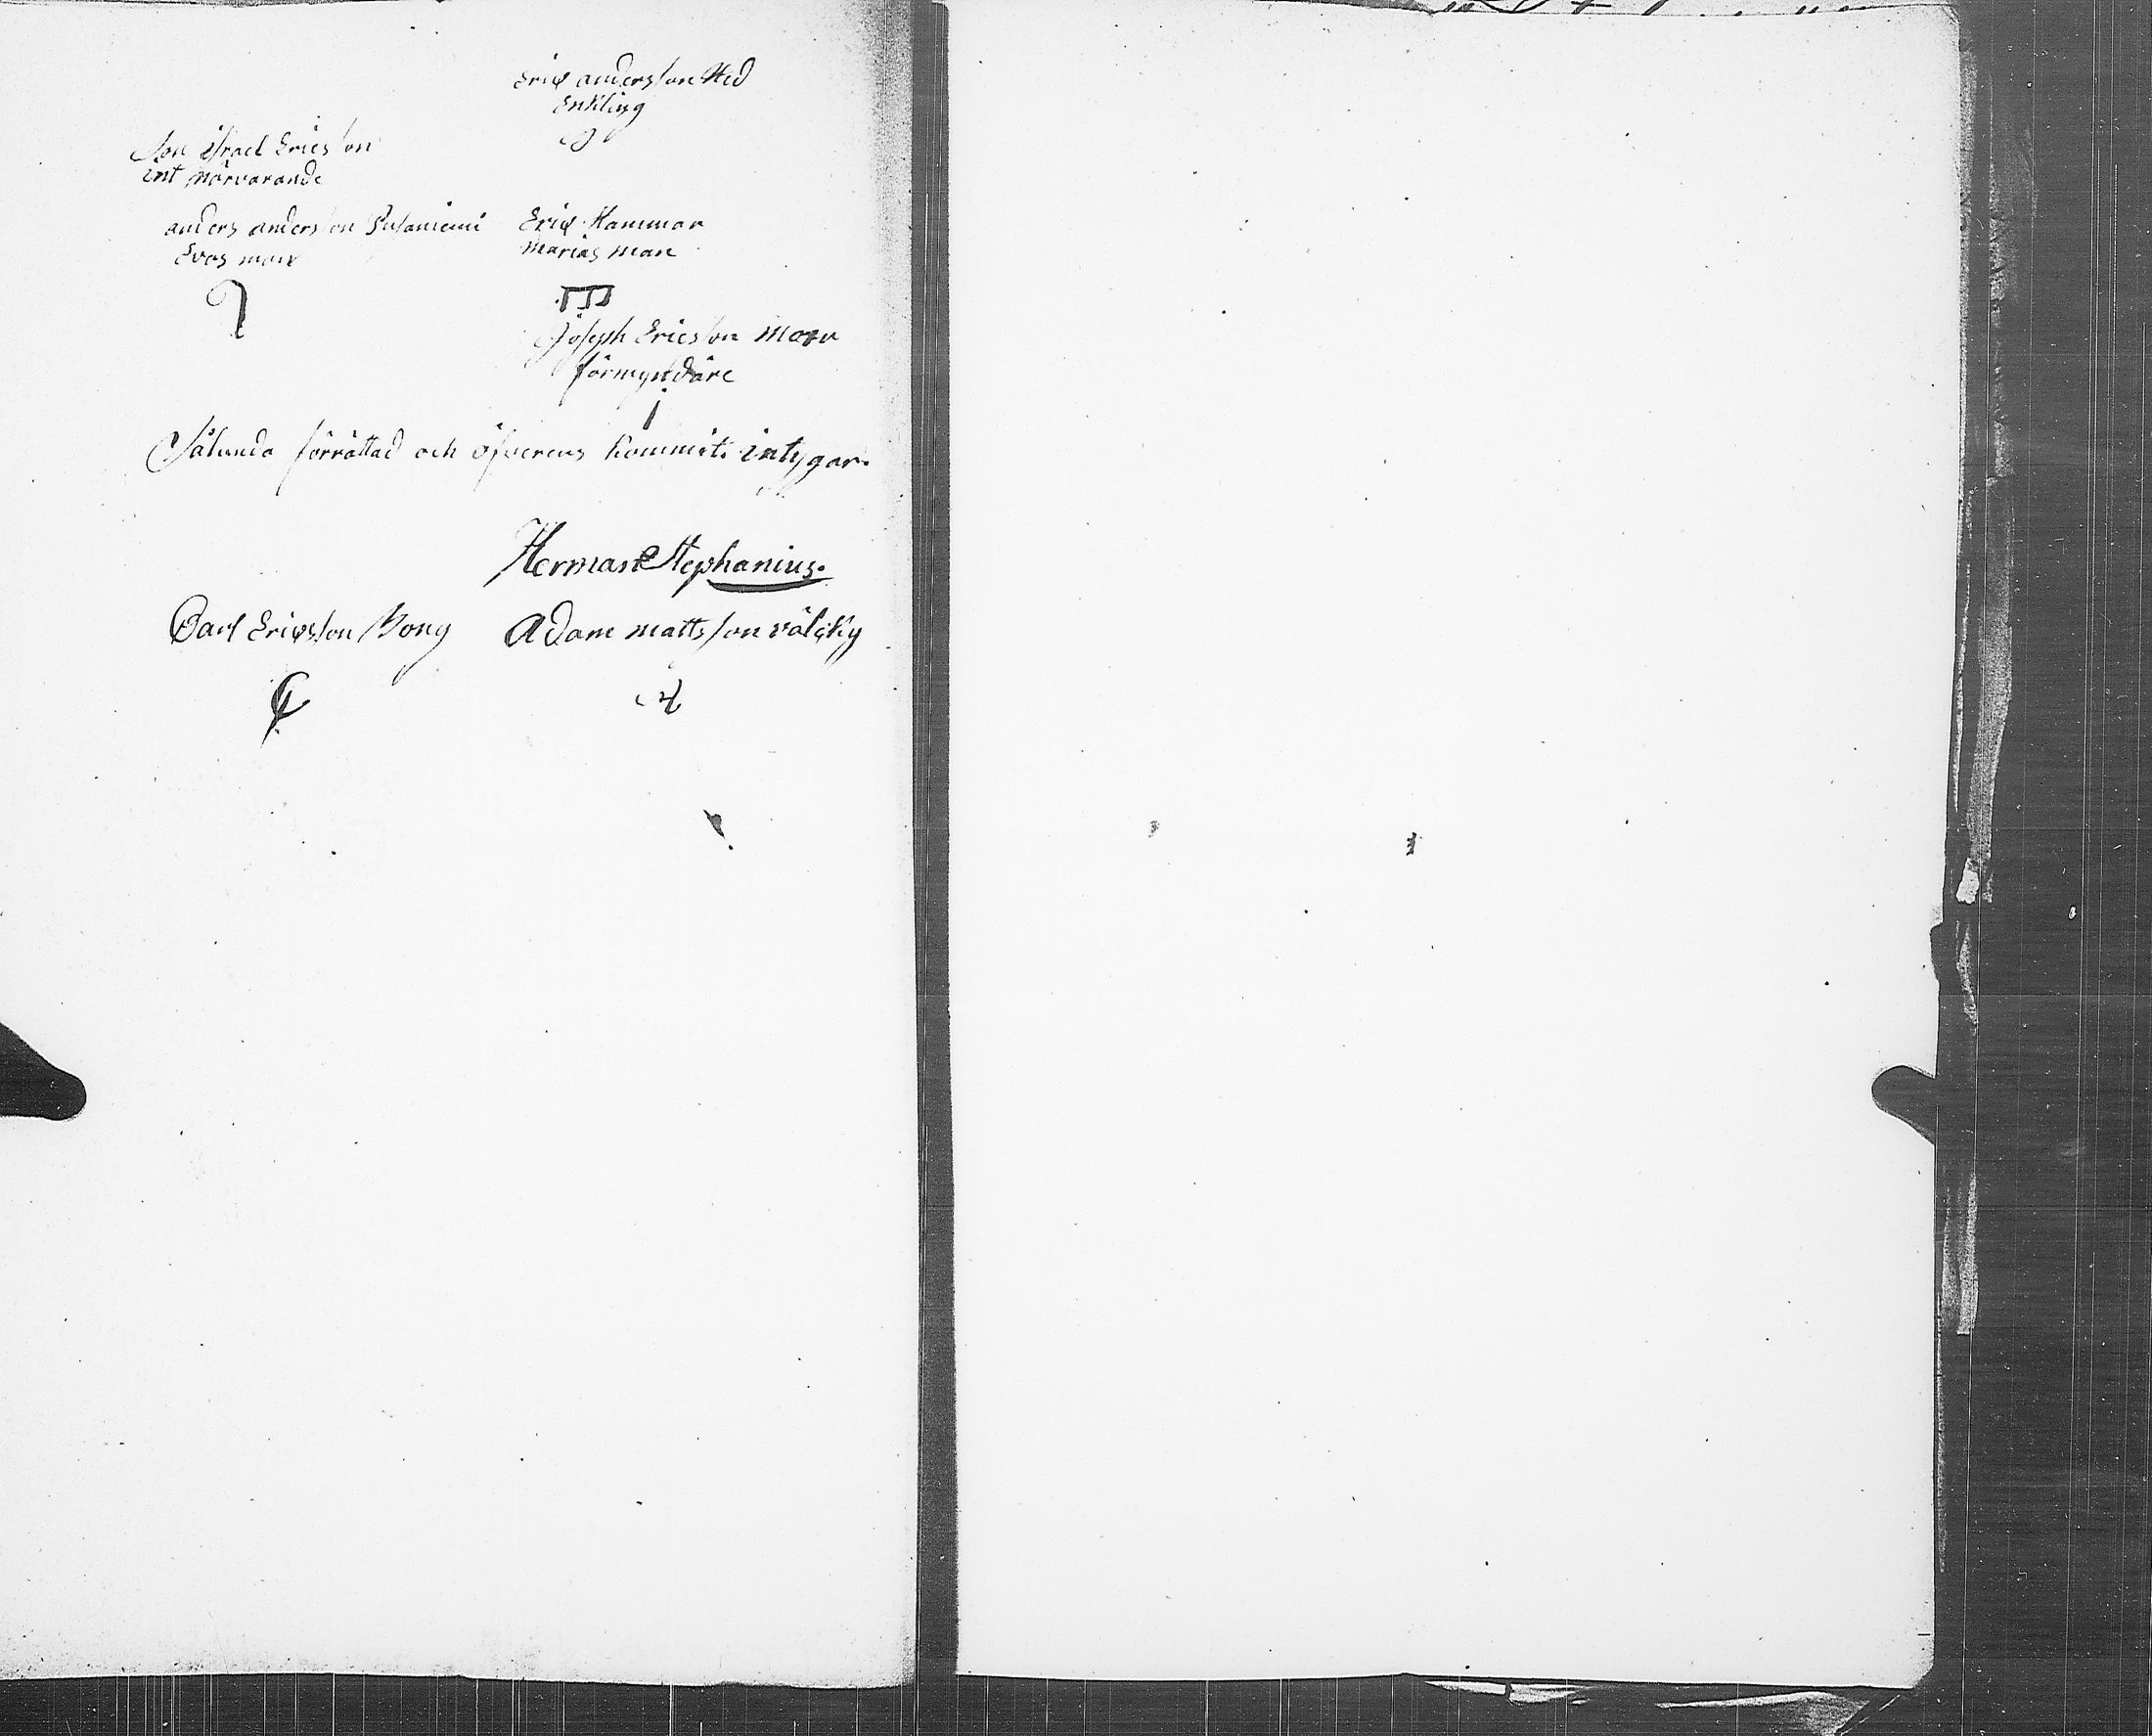 Eric andersson Hed
Enkling
Son israel Ericsson
int närvarande
anders andersson
Evas man
Eric Hammar
Marias man
Joseph Ericsson
förmyndare
Sålunda förrättad och öfverens kommit. intygar.
Herman Stephanius.
Carl Ericsson Bong
Adam mattsson välcky